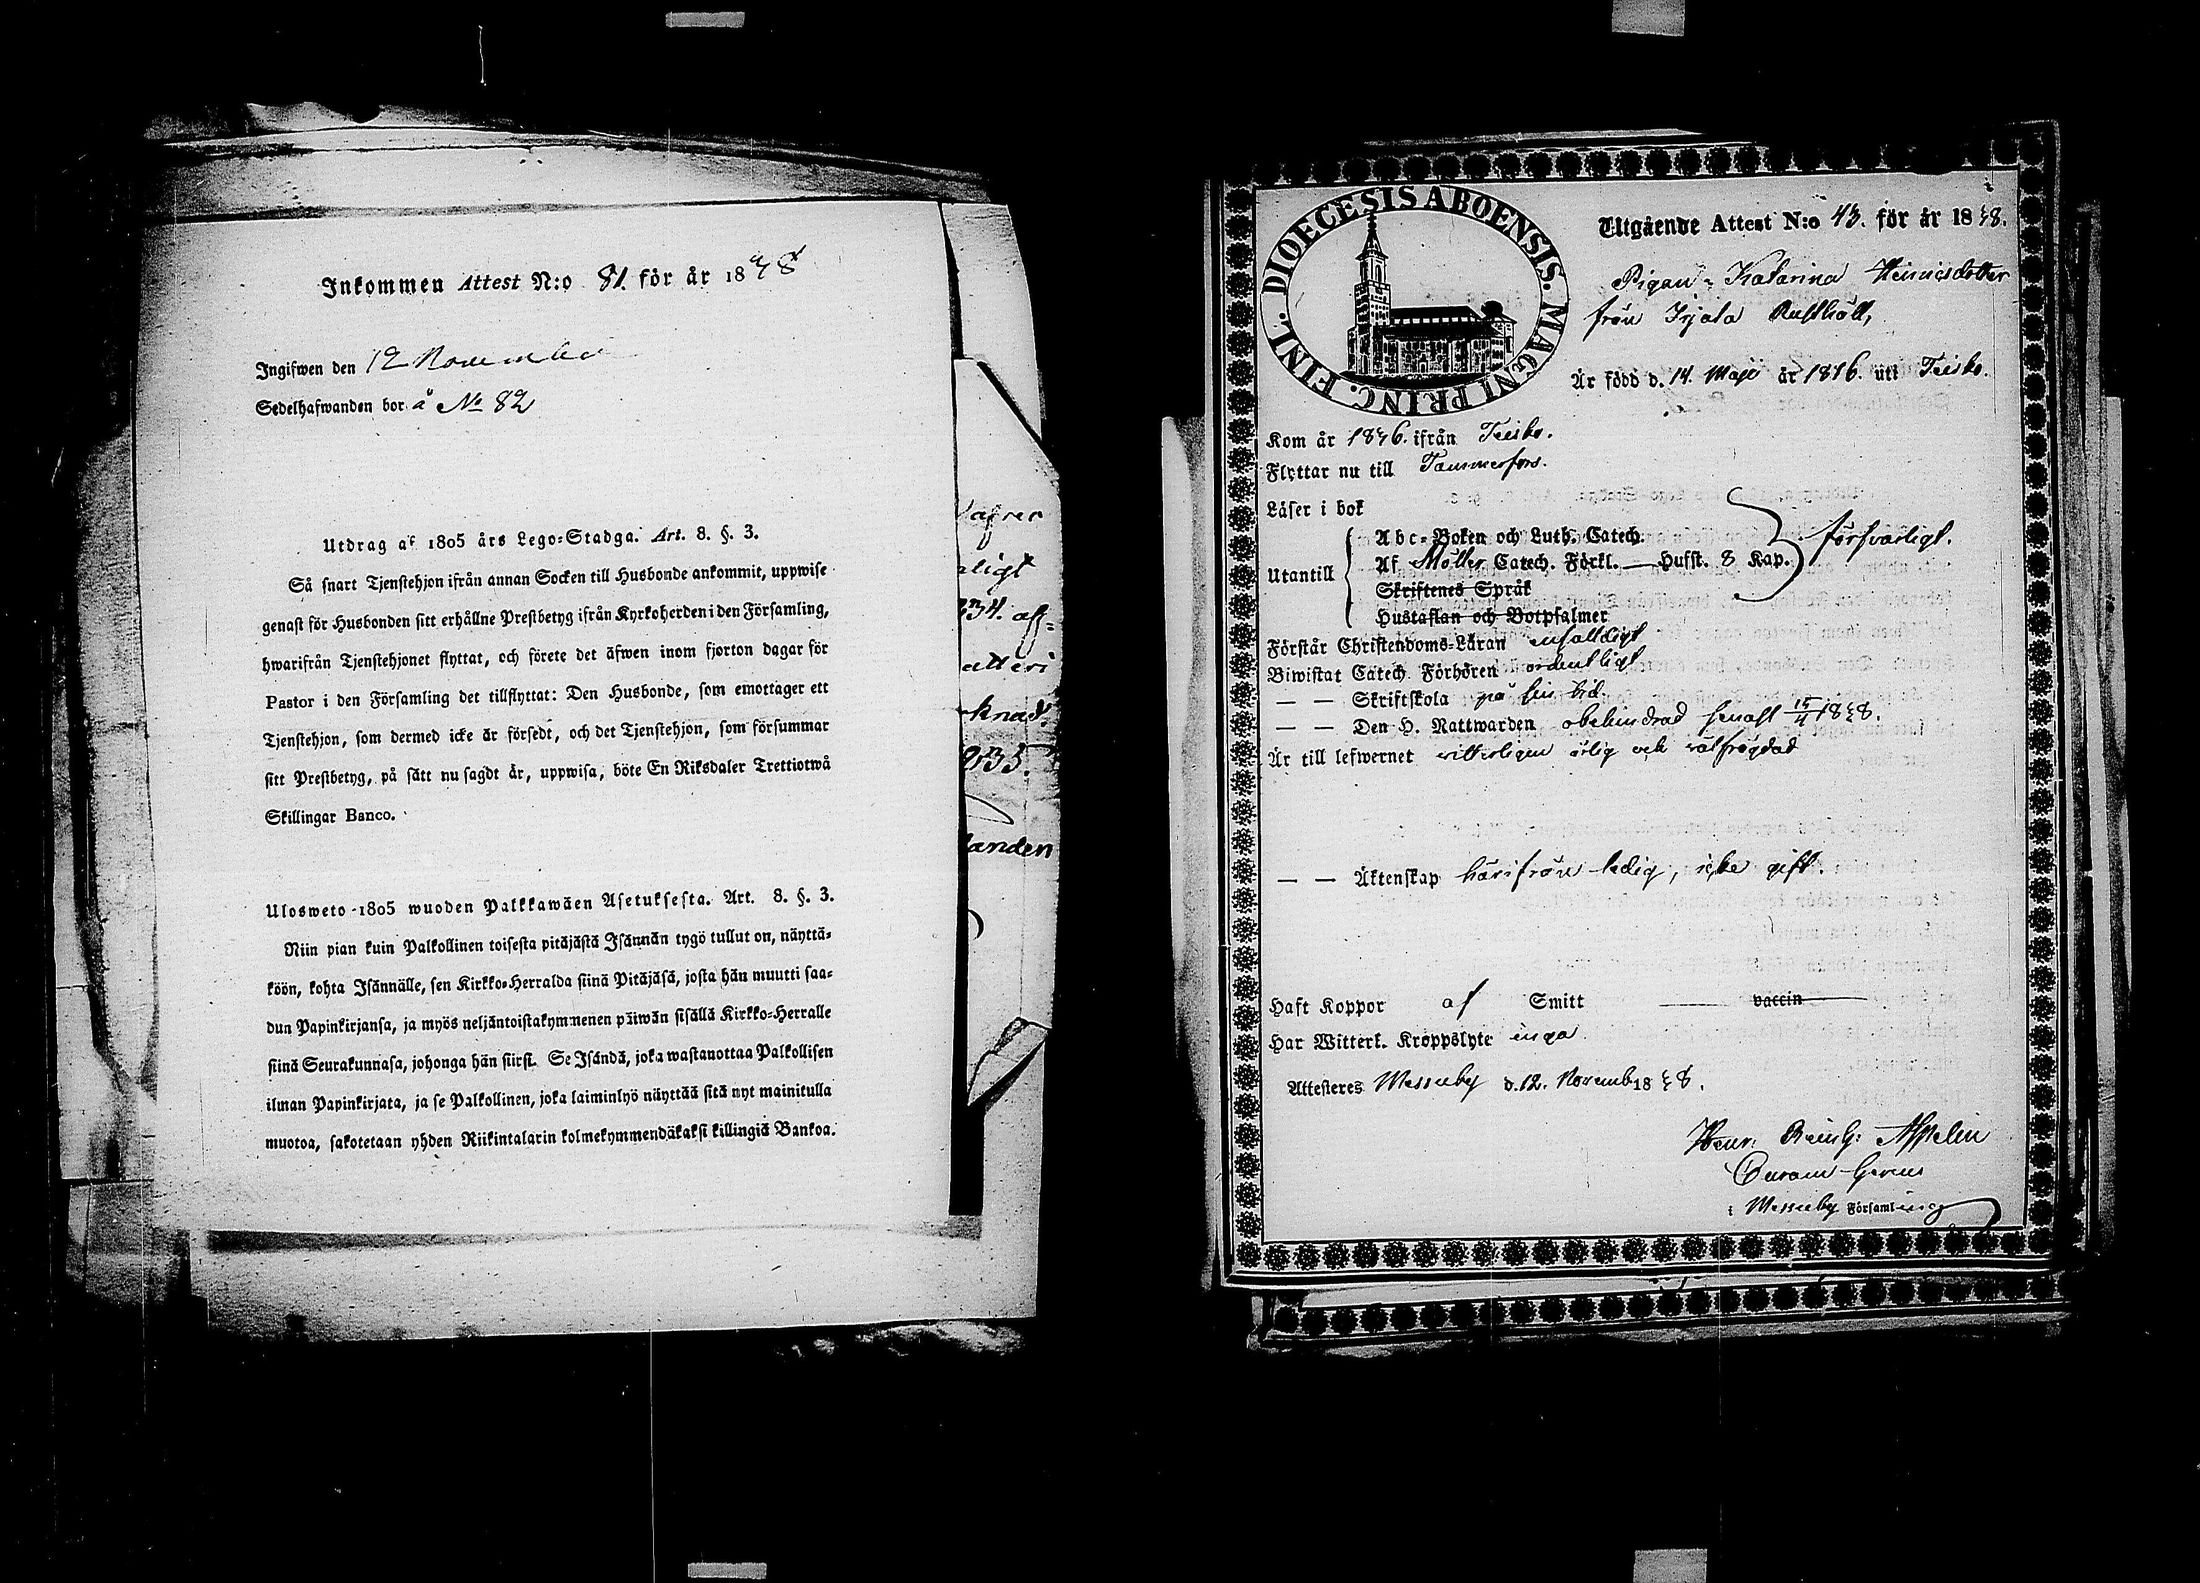 Inkommen Attest N:o 81. för år 1848
Ingifwen den 12 November
Sedelhafwanden bor å No 82
Utdrag af 1805 års Lego-Stadga. Art. 8. §. 3.
Så snart Tjenstehjon ifrån annan Socken till Husbonde ankommit, uppwise
genast för Husbonden sitt erhållne Prestbetyg ifrån Kyrkoherden i den Församling,
hwarifrån Tjenstehjonet flyttat, och förete det äfwen inom fjorton dagar för
Pastor i den Församling det tillflyttat: Den Husbonde, som emottager ett
Tjenstehjon, som dermed icke är försedt, och det Tjenstehjon, som försummar
sitt Prestbetyg, på sätt nu sagdt är, uppwisa, böte En Riksdaler Trettiotwå
Skillingar Banco.
Ulosweto 1805 wuoden Palkkawäen Asetuksesta. Art. 8. §. 3.
Niin pian kuin Palkollinen toisesta pitäjästä Isännän tygö tullut on, näyttä-
köön, kohta Isännälle, sen Kirkko-Herralda siinä Pitäjäsä, josta hän muutti saa-
dun Papinkirjansa, ja myös neljäntoistakymmenen päiwän sisällä Kirkko-Herralle
siinä Seurakunnasa, johonga hän siirsi. Se Isändä, joka wastanottaa Palkollisen
ilman Papinkirjata, ja se Palkollinen, joka laiminlyö näyttää sitä nyt mainitulla
muotoa, sakotetaan yhden Riikintalarin kolmekymmendäkaksi killingiä Bankoa.
aligt
334. af-
atteri
knad.
835.
anden
DIOECESIS ABOENSIS. MAGNI PRINC. FINL.
Utgående Attest N:o 43. för år 1848.
Pigan Katarina Henricsdotter
från Irjala Rusthåll,
Är född d. 14. Maji år 1816. uti Teisko.
Kom år 1846. ifrån Teisko.
Flyttar nu till Tammerfors.
Läser i bok
Utantill
Abc-Boken och Luth. Catech.
Af Möller Catech. Förkl. — Hufst. 8 Kap.
Skriftenes Språk
Hustaflan och Botpsalmer
försvarligt.
Förstår Christendoms-Läran enfalldigt
Biwistat Catech. Förhören ordentligt
— — Skriftskola på sin tid.
— — Den H. Nattwarden obehindrad senast 15/4 1848.
Är till lefwernet vitterligen ärlig och välfrägdad
— — Äktenskap härifrån ledig, icke gift.
Haft Koppor af Smitt — vaccin
Har Witterl. Kroppslyte inga
Attesteres Messuby d. 12. Novemb 1848.
Henr. Reinh: Aspelin
i Messuby Församling